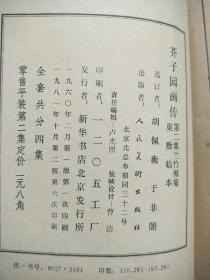 芥子园画传 第二集兰竹梅菊
巢勋临本
选订者：胡佩衡 于非闇
出版者：人民美术出版社
北京北总布胡同三十二号
责任编辑：卢光照 装帧设计：曹洁
印刷者：一二〇五工厂
发行者：新华书店北京发行所
一九六〇年二月第一版第一次印刷
一九八一年十月第二版第六次印刷
全套共分四集
零售平装第二集定价 一元八角
统一书号：8027·3561